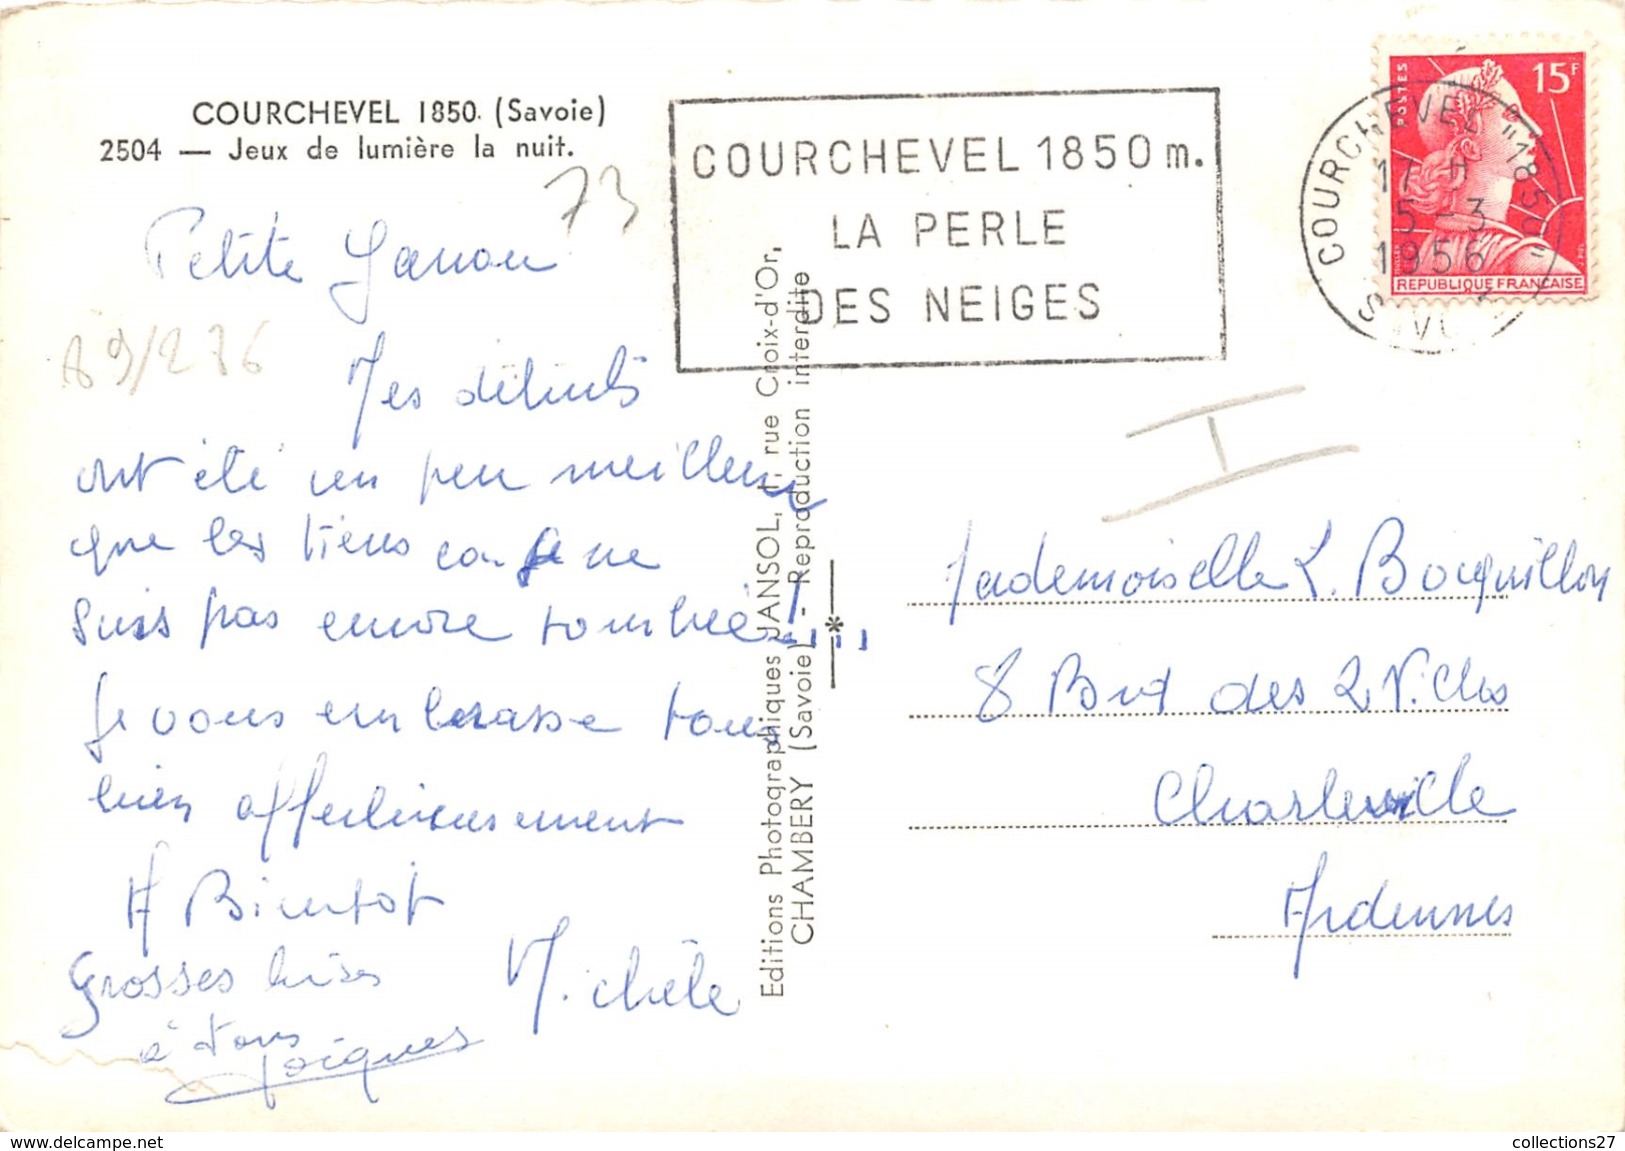 COURCHEVEL 1850. (Savoie)
2504 — Jeux de lumière la nuit.
73
COURCHEVEL 1850 m.
LA PERLE
DES NEIGES
15F
POSTES
REPUBLIQUE FRANÇAISE
COURCHEVEL "1850"
17 H
5-3
1956
SAVOIE
Petite
A9/276
Mes débuts
ont été un peu meilleurs
que les tiens car je ne
suis pas encore tombée!...
Je vous embrasse tous
bien affectueusement
A Bientôt
Michèle
Grosses bises
à tous
Jacques
Editions Photographiques JANSOL, 1, rue Croix-d'Or,
CHAMBERY (Savoie) - Reproduction interdite
*
Mademoiselle L. Bocquillon
8 Bvd des 2 Villes
Charleville
Ardennes
www.delcampe.net
collections27